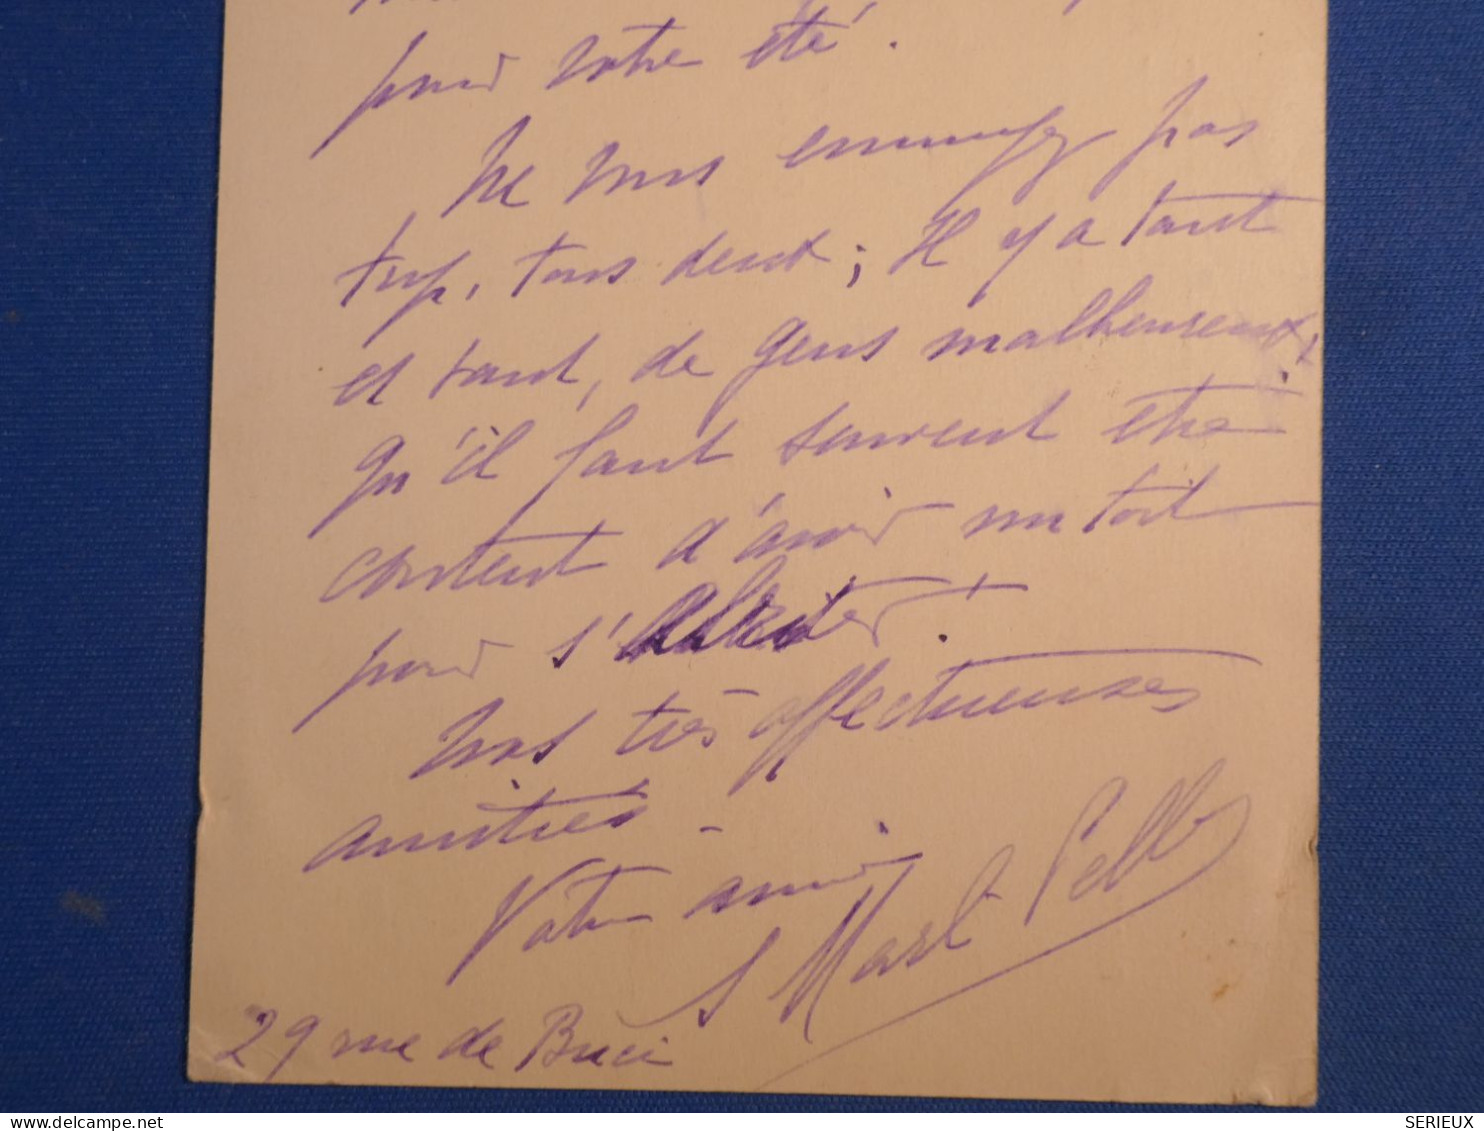 pour votre été.
Ne vous ennuyez pas
trop, tous deux ; Il y a tant
et tant, de gens malheureux,
qu'il faut souvent être
content d'avoir un toit
pour s'abriter.
Nos très affectueuses
amitiés -
Votre ami
29 rue de Buci
SERIEUX